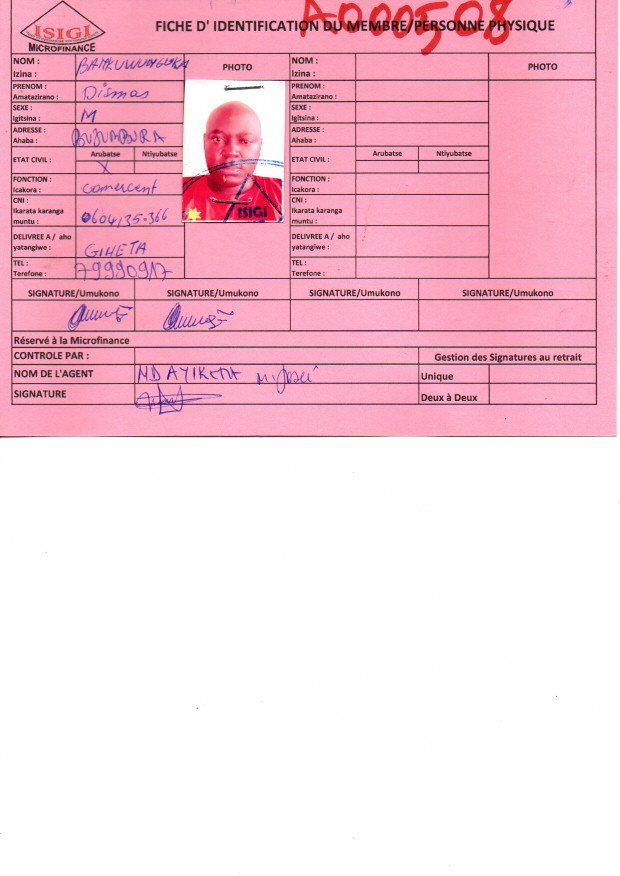 ISIGI
MICROFINANCE
FICHE D' IDENTIFICATION DU MEMBRE/PERSONNE PHYSIQUE
A000508
NOM :
Izina :
PHOTO
NOM :
Izina :
PHOTO
PRENOM :
Amatazirano :
Dismas
PRENOM :
Amatazirano :
SEXE :
Igitsina :
M
SEXE :
Igitsina :
ADRESSE :
Ahaba :
BUJUMBURA
ADRESSE :
Ahaba :
ETAT CIVIL :
Arubatse Ntiyubatse
X
ETAT CIVIL :
Arubatse Ntiyubatse
FONCTION :
Icakora :
comercent
FONCTION :
Icakora :
CNI :
Ikarata karanga
muntu :
0604/35-366
CNI :
Ikarata karanga
muntu :
DELIVREE A / aho
yatangiwe :
GIHETA
DELIVREE A / aho
yatangiwe :
TEL :
Terefone :
79990917
TEL :
Terefone :
ISIGI
SIGNATURE/Umukono SIGNATURE/Umukono SIGNATURE/Umukono SIGNATURE/Umukono
Réservé à la Microfinance
CONTROLE PAR :
Gestion des Signatures au retrait
NOM DE L'AGENT
Unique
SIGNATURE
Deux à Deux